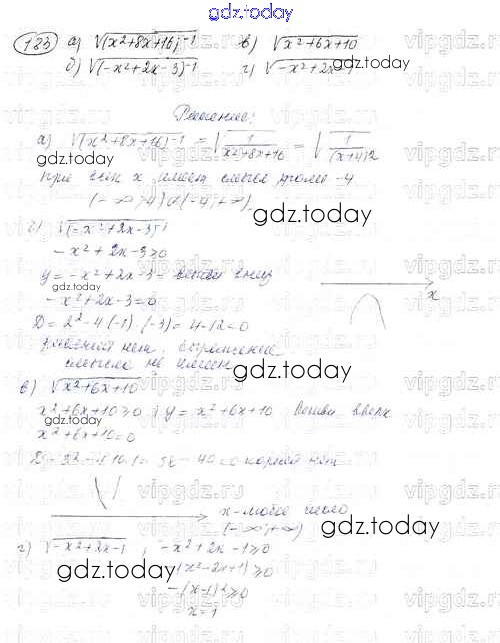 gdz.today
183 а) √(x²+8x+16)⁻¹ в) √x²+6x+10
б) √(-x²+2x-3)⁻¹ г) √-x²+2x-1
Решение:
а) √(x²+8x+16)⁻¹ = √1/x²+8x+16 = √1/(x+4)²
gdz.today
при всех x имеет смысл кроме -4
(-∞; -4)∪(-4; +∞)
gdz.today
√(-x²+2x-3)⁻¹
-x²+2x-3≥0
gdz.today
y=-x²+2x-3 = ветви вниз
-x²+2x-3=0
x
D=2²-4(-1)·(-3)=4-12=0
решений нет, выражение
смысла не имеет
gdz.today
в) √x²+6x+10
x²+6x+10≥0; y=x²+6x+10 ветви вверх
gdz.today
x²+6x+10=0
40=0 корней нет
x-любое число
(-∞; +∞)
gdz.today
г) √-x²+2x-1; -x²+2x-1≥0
gdz.today
(x²-2x+1)≥0
-(x-1)²≥0
x=1